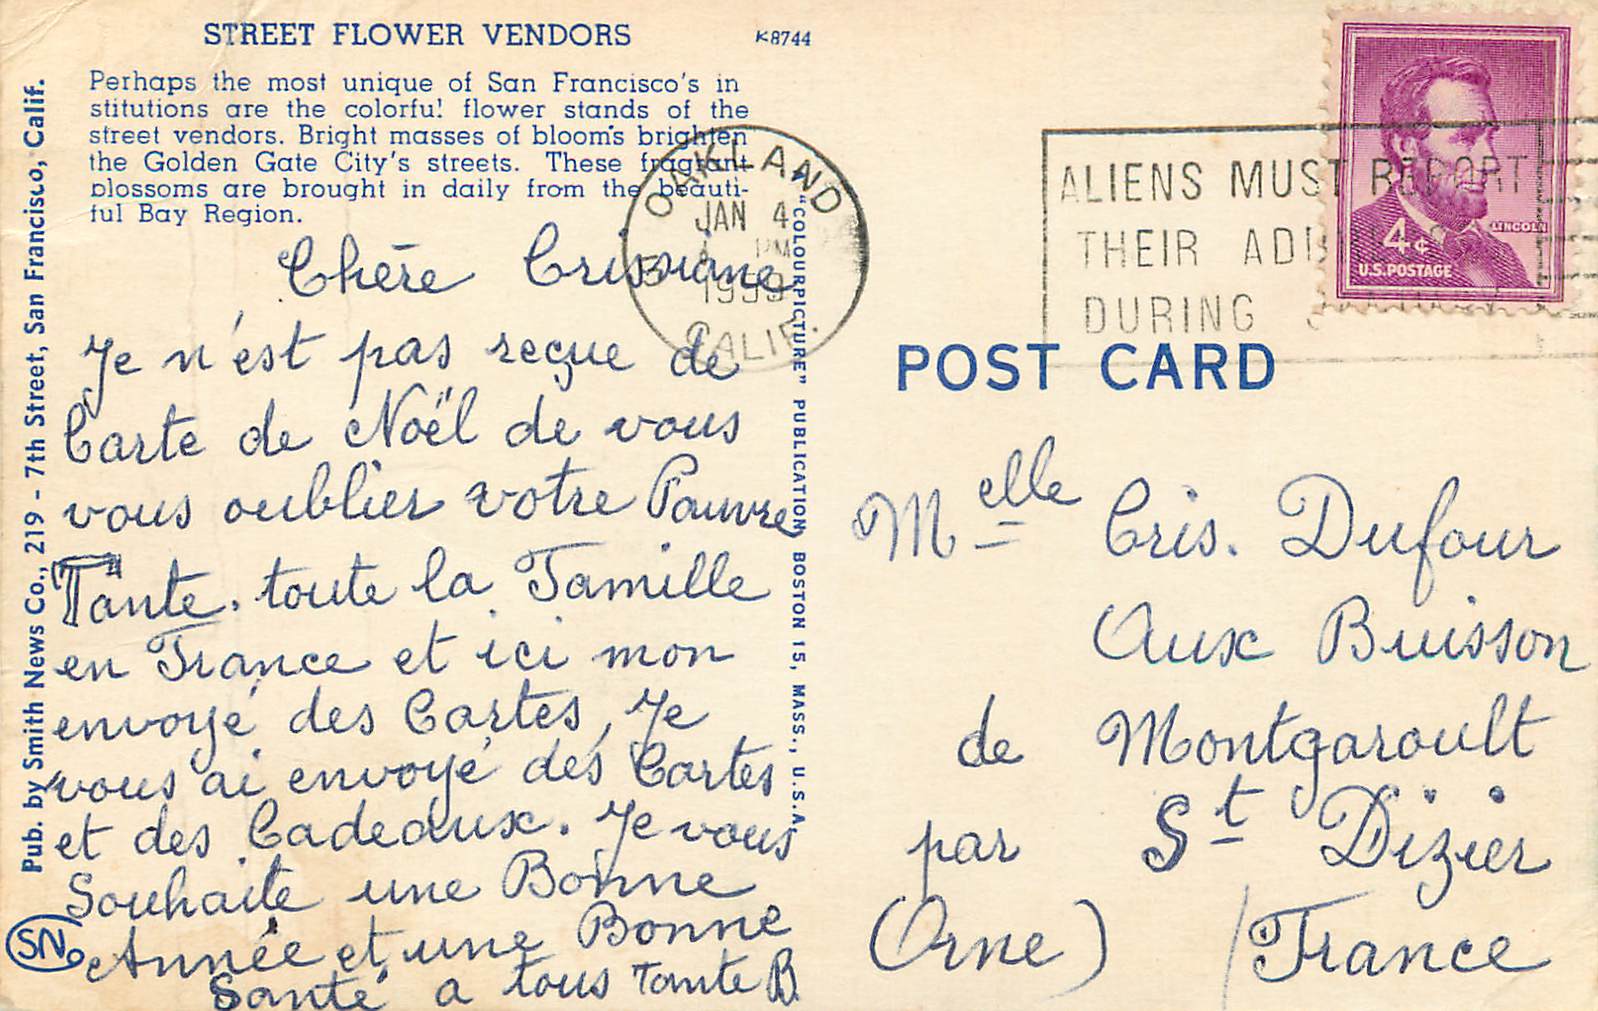 STREET FLOWER VENDORS
K8744
Perhaps the most unique of San Francisco's in
stitutions are the colorful flower stands of the
street vendors. Bright masses of blooms brighten
the Golden Gate City's streets. These fragrant
blossoms are brought in daily from the beauti-
ful Bay Region.
Pub. by Smith News Co., 219 - 7th Street, San Francisco, Calif.
SN
Chère Crissiane
Je n'est pas reçue de
Carte de Noël de vous
vous oublier votre Pauvre
Tante. toute la Famille
en France et ici mon
envoyé des Cartes, Je
vous ai envoyé des Cartes
et des Cadeaux. Je vous
Souhaite une Bonne
Année et une Bonne
Santé a tous Tante B.
"COLOURPICTURE" PUBLICATION, BOSTON 15, MASS., U.S.A.
OAKLAND
JAN 4
PM
1959
CALIF.
ALIENS MUST REPORT
THEIR ADD
DURING JANUARY
4¢
LINCOLN
U.S. POSTAGE
POST CARD
Melle Cris. Dufour
Aux Buisson
de Montgaroult
par St Dizier
(Orne) France